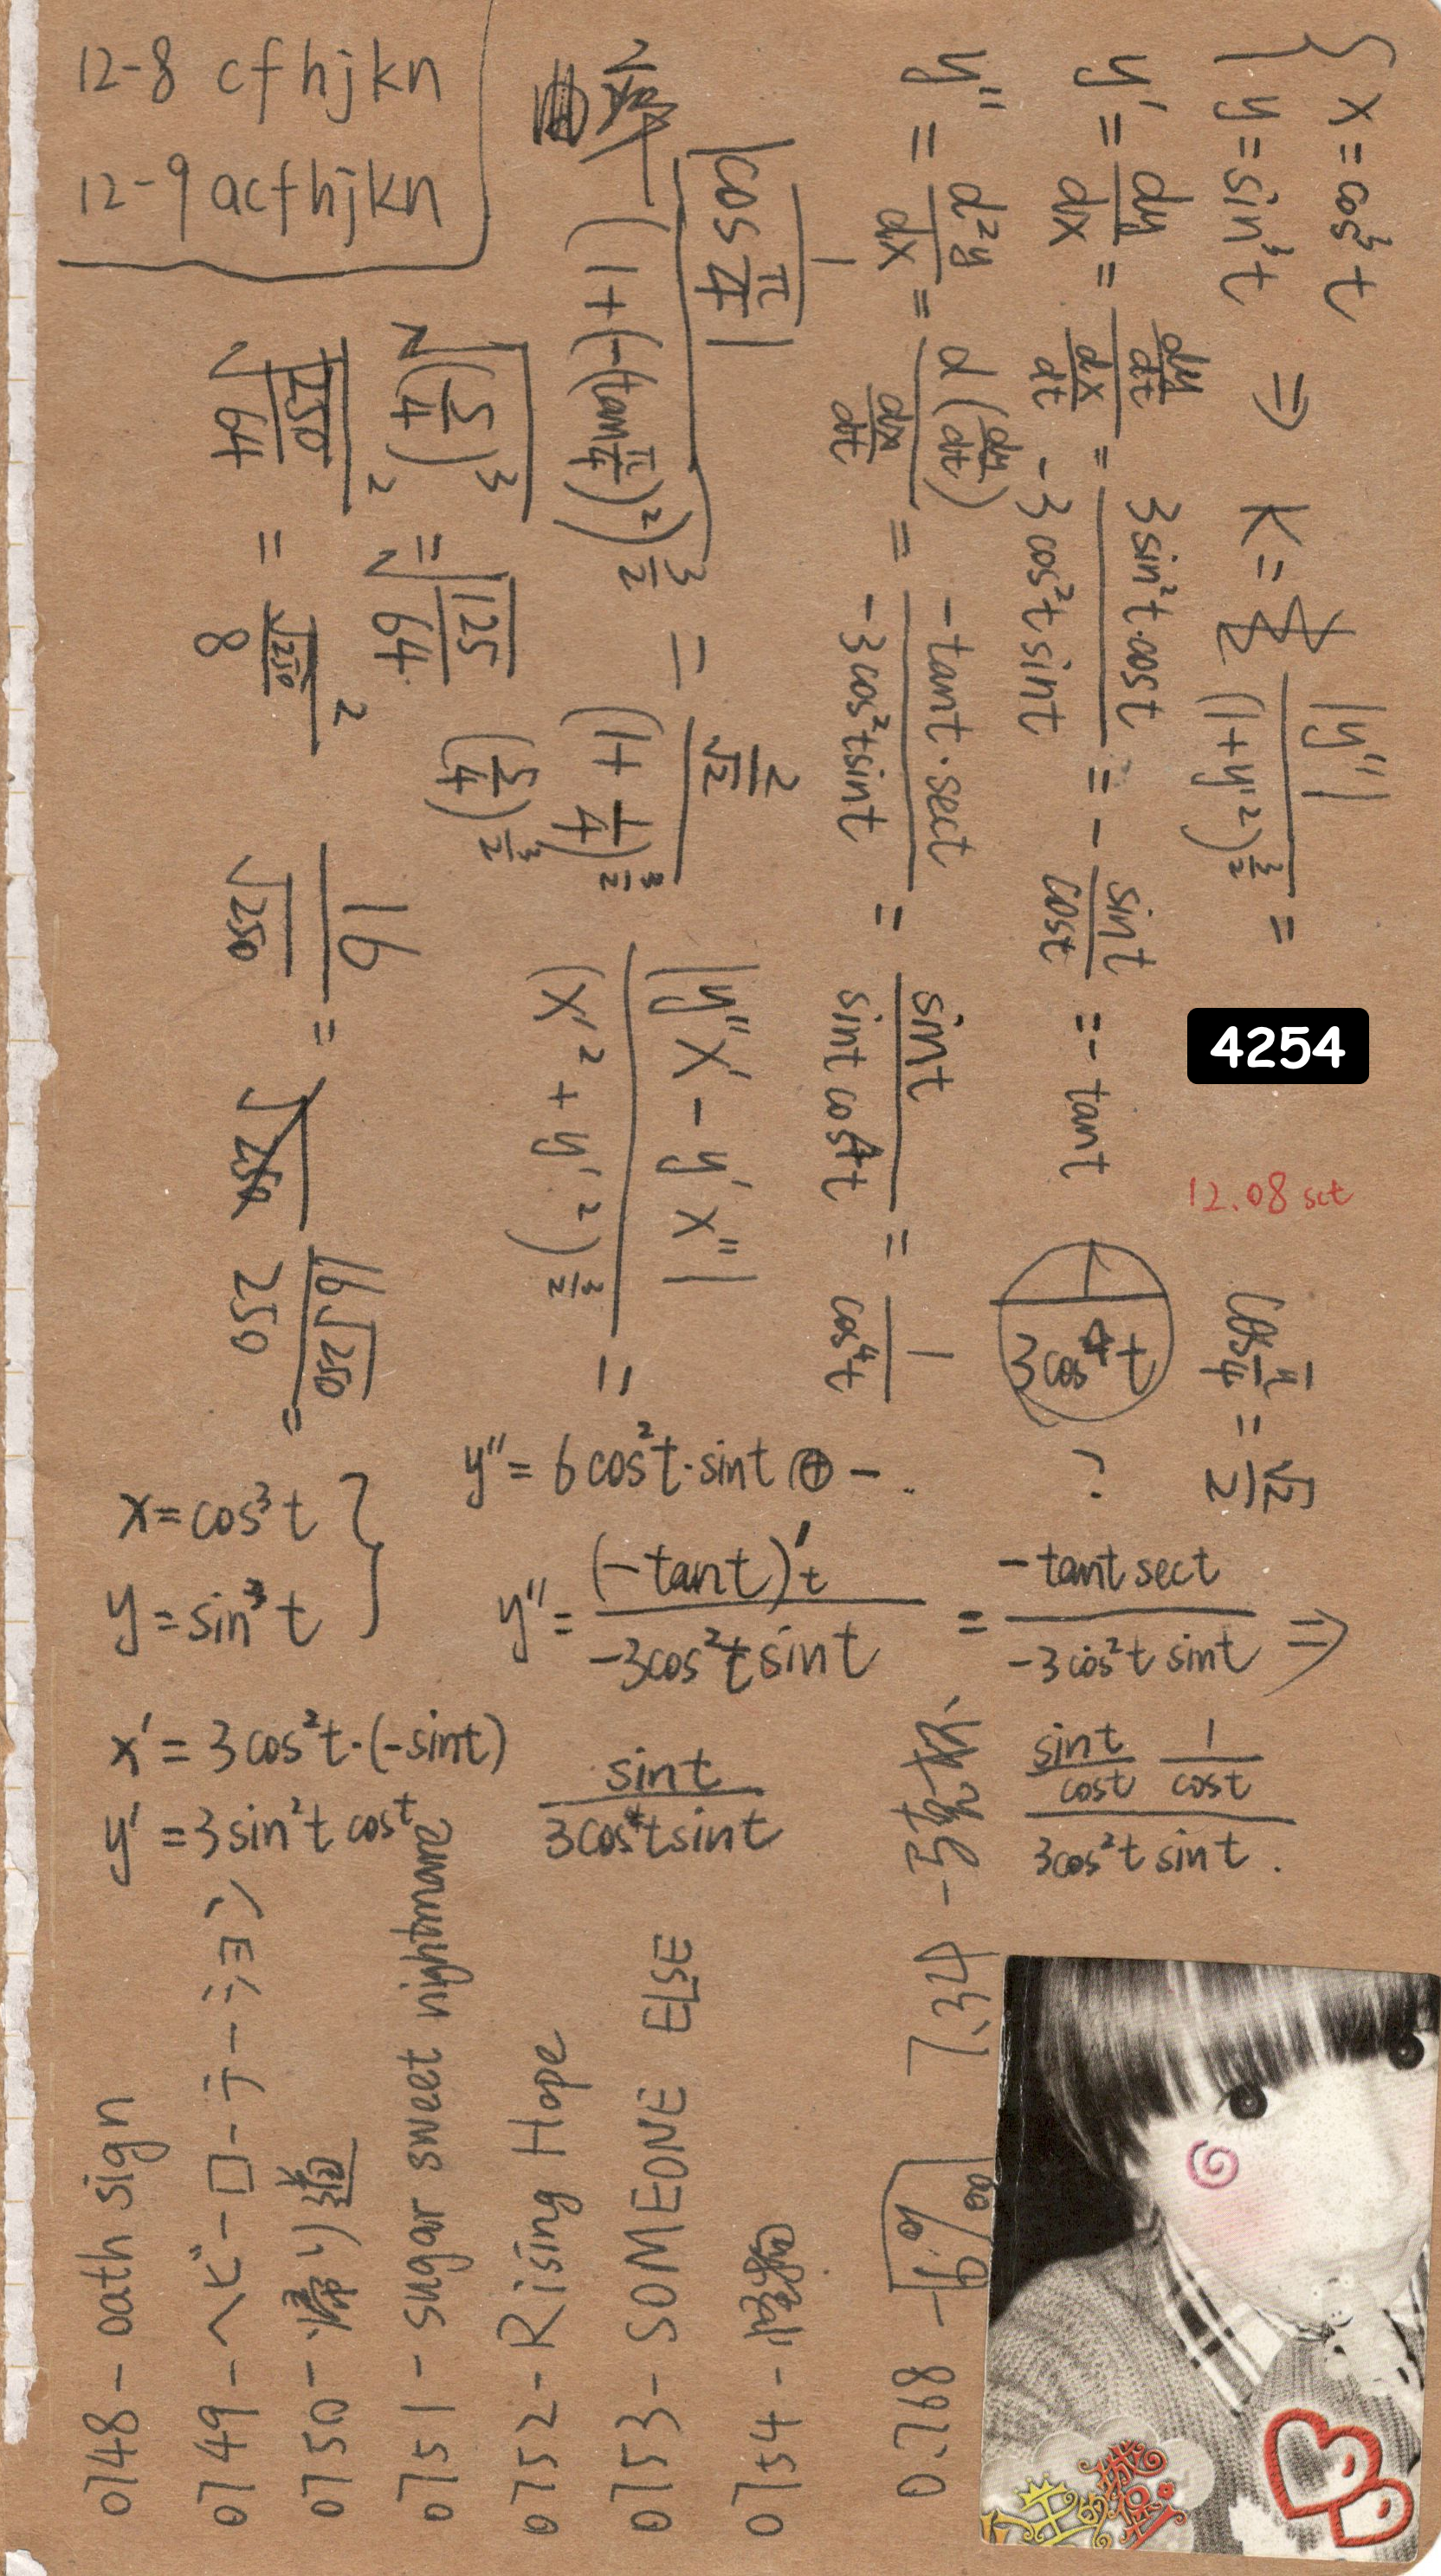 12-8 cfhjkn
12-9 acfhjkn
{ x = cos³t
y = sin³t ⇒ K = |y''| / (1+y'²)^(3/2) =
y' = dy/dx = (dy/dt)/(dx/dt) = 3sin²t·cost / -3cos²t sint = - sint/cost = -tant
y'' = d²y/dx = d(dy/dt)/(dx/dt) = -tant·sect / -3cos²t sint = sint / sint cos⁴t = 1/cos⁴t
3cos⁴t
cos π/4 = √2/2
1/|cos π/4|
(1+(-tan π/4)²)^(3/2) = 2/√2 / (1+1/4)^(3/2)
(5/4)^(3/2)
|y''x' - y'x''| / (x'² + y'²)^(3/2) =
√(5/4)³ = √125/64
√250/64 = √250/8
16/√250 = 16√250/250 =
4254
12.08 sct
y'' = 6cos²t·sint ⊕ -.
x = cos³t }
y = sin³t
y'' = (-tant)'t / -3cos²t sint = -tant sect / -3cos²t sint ⇒
x' = 3cos²t·(-sint)
y' = 3sin²t cost
sint / 3cos⁴t sint
sint/cost 1/cost / 3cos²t sint.
0748 - oath sign
0749 - ヘビーローテーション
0750 - 帰り道
0751 - sugar sweet nightmare
0752 - Rising Hope
0753 - SOMEONE ELSE
0754 -
0.768 -